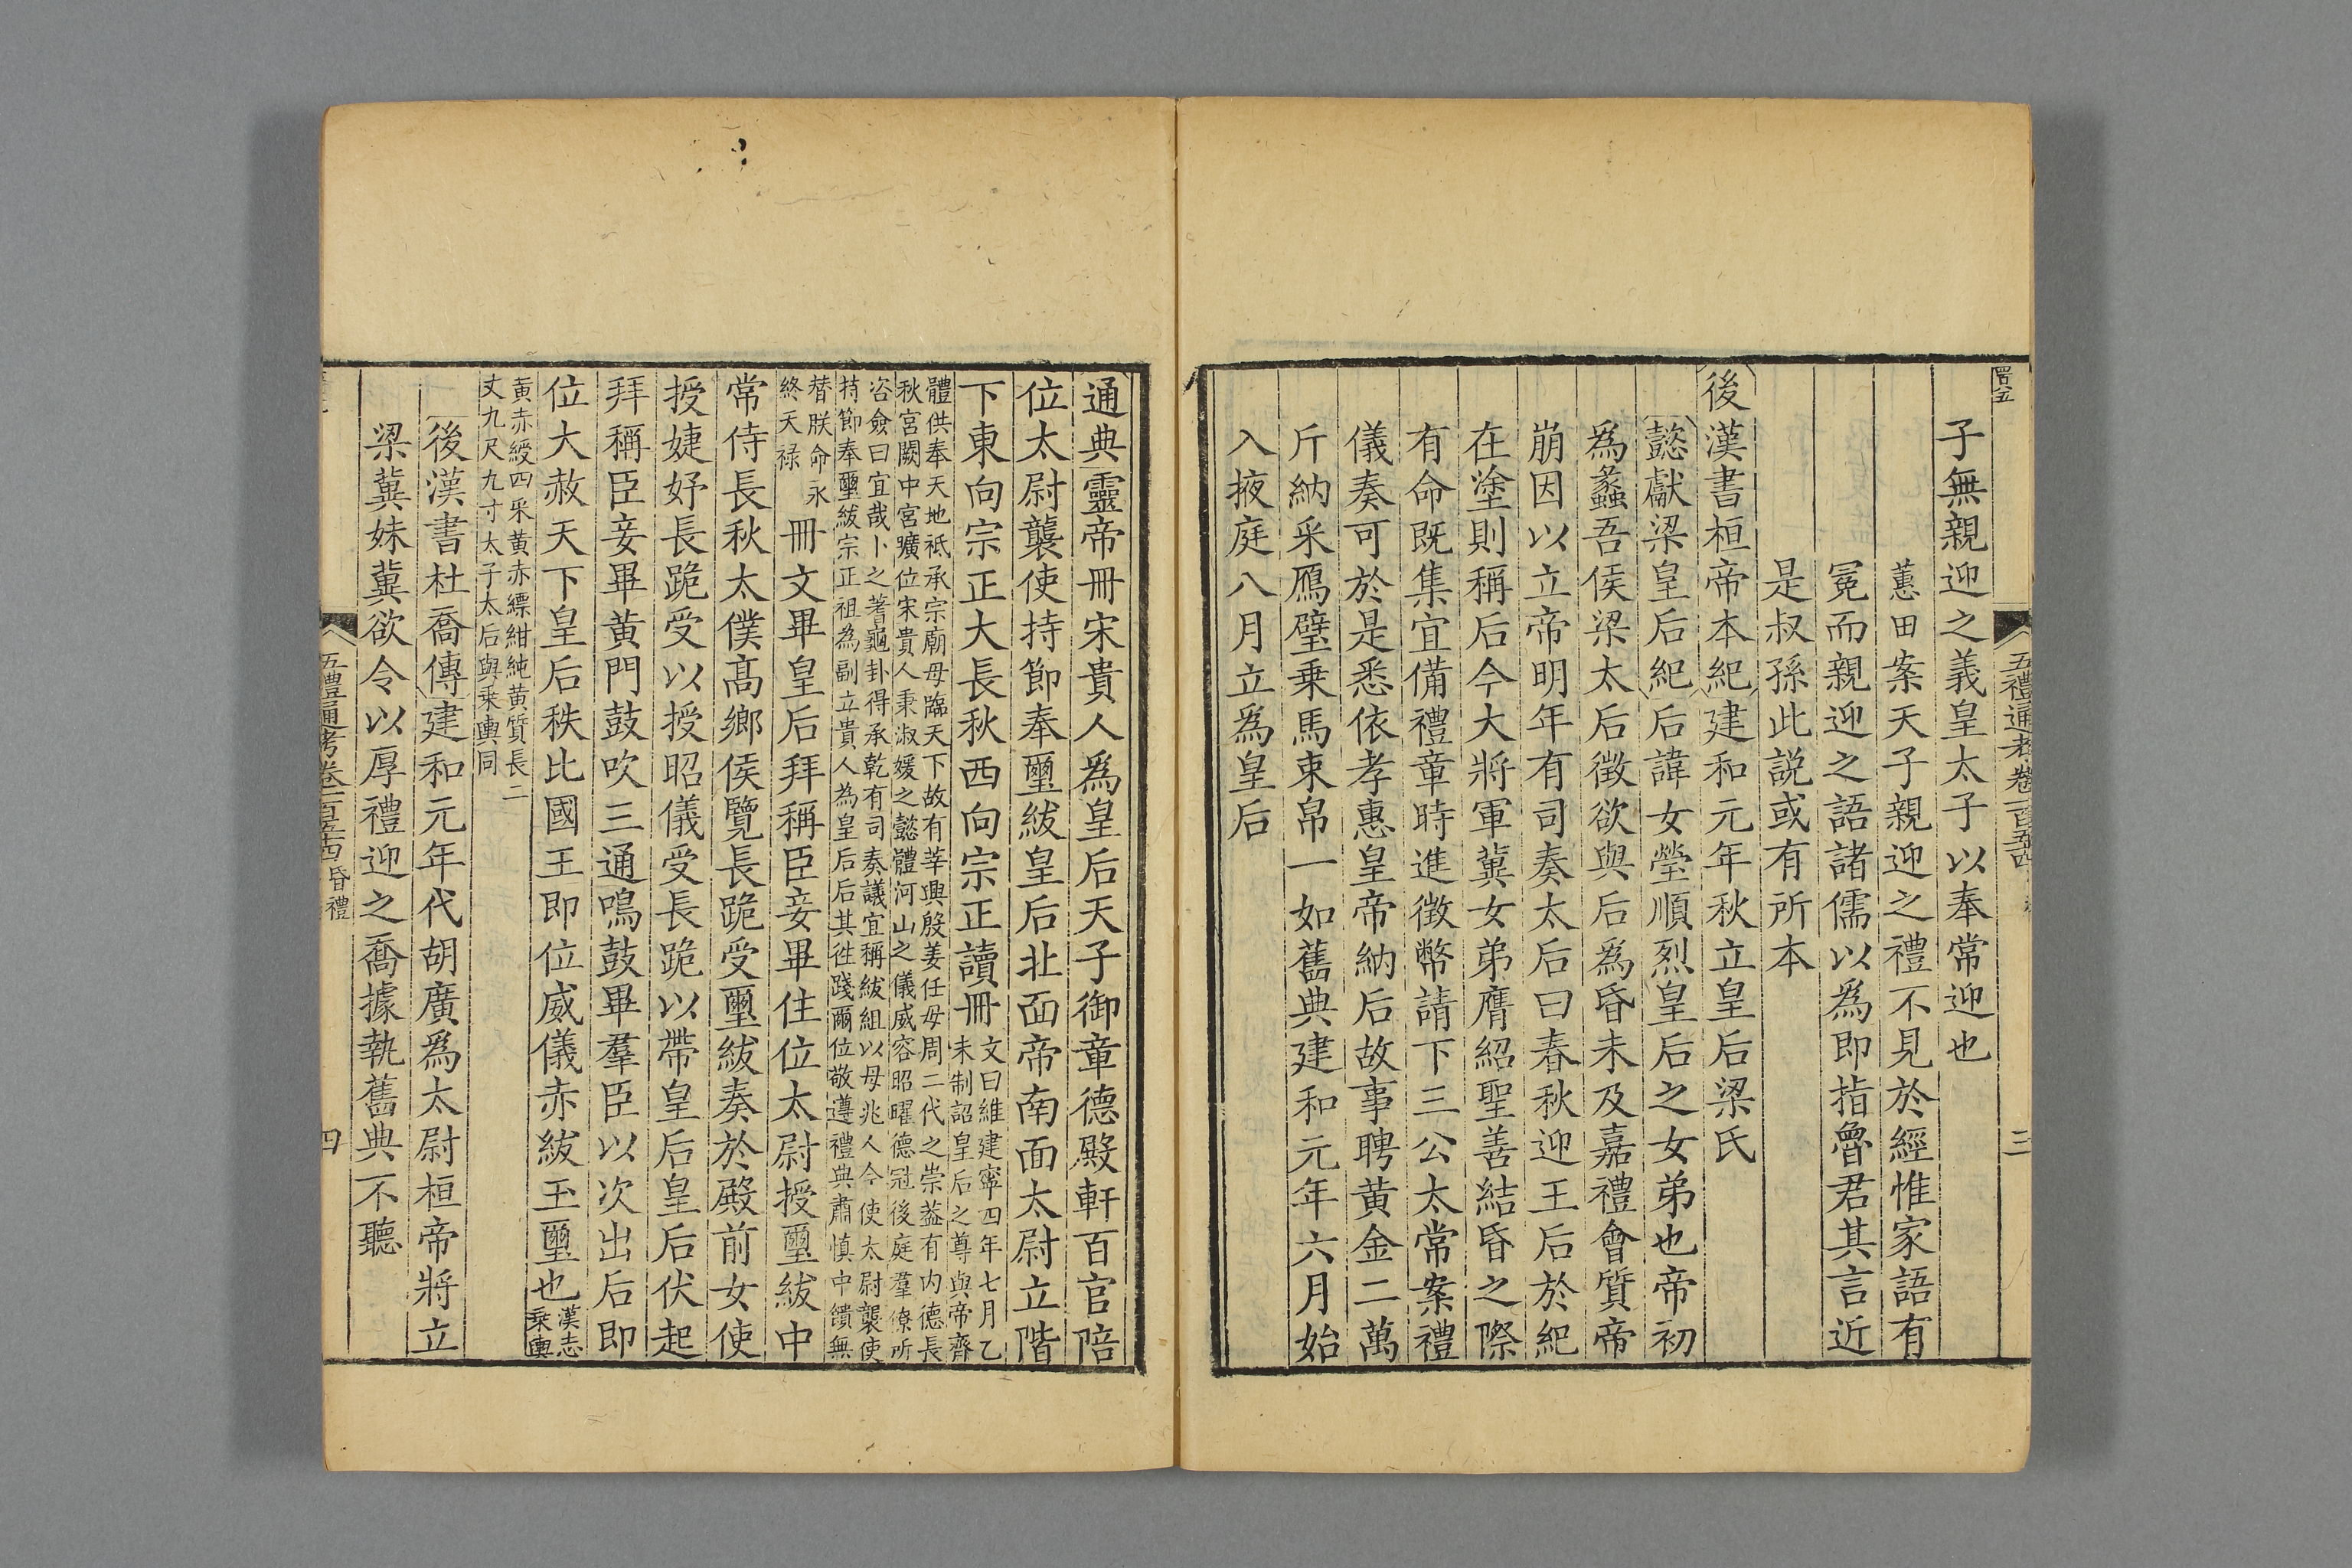 子無親迎之義皇太子以奉常迎也
蕙田案天子親迎之禮不見於經惟家語有
冕而親迎之語諸儒以為即指魯君其言近
是叔孫此說或有所本
後漢書桓帝本紀建和元年秋立皇后梁氏
懿獻梁皇后紀后諱女瑩順烈皇后之女弟也帝初
爲蠡吾侯梁太后徵欲與后爲昏未及嘉禮會質帝
崩因以立帝明年有司奏太后曰春秋迎王后於紀
在塗則稱后今大將軍冀女弟膺紹聖善結昏之際
有命既集宜備禮章時進徵幣請下三公太常案禮
儀奏可於是悉依孝惠皇帝納后故事聘黃金二萬
斤納采鴈璧乗馬束帛一如舊典建和元年六月始
入掖庭八月立爲皇后
五禮通考卷一百五十四
三
通典靈帝冊宋貴人爲皇后天子御章德殿軒百官陪
位太尉襲使持節奉璽紱皇后北面帝南面太尉立階
下東向宗正大長秋西向宗正讀冊文曰維建寧四年七月乙
未制詔皇后之尊與帝齊
體供奉天地祗承宗廟母臨天下故有莘興殷姜任母周二代之崇葢有内德長
秋宮闕中宮曠位宋貴人秉淑媛之懿體河山之儀威容昭曜德冠後庭羣僚所
咨僉曰宜哉卜之蓍龜卦得承乾有司奏議宜稱紱組以母兆人今使太尉襲使
持節奉璽紱宗正祖為副立貴人為皇后后其徃踐爾位敬遵禮典肅慎中饋無
替朕命永
終天禄
冊文畢皇后拜稱臣妾畢住位太尉授璽紱中
常侍長秋太僕髙鄉侯覽長跪受璽紱奏於殿前女使
授婕妤長跪受以授昭儀受長跪以帶皇后皇后伏起
拜稱臣妾畢黃門鼓吹三通鳴鼓畢羣臣以次出后即
位大赦天下皇后秩比國王即位威儀赤紱玉璽也漢志
乗輿
黄赤綬四采黄赤縹紺純黄質長二
丈九尺九寸太子太后與乗輿同
後漢書杜喬傳建和元年代胡廣爲太尉桓帝將立
梁冀妹冀欲令以厚禮迎之喬據執舊典不聽
五禮通考卷一百五十四昏禮
四